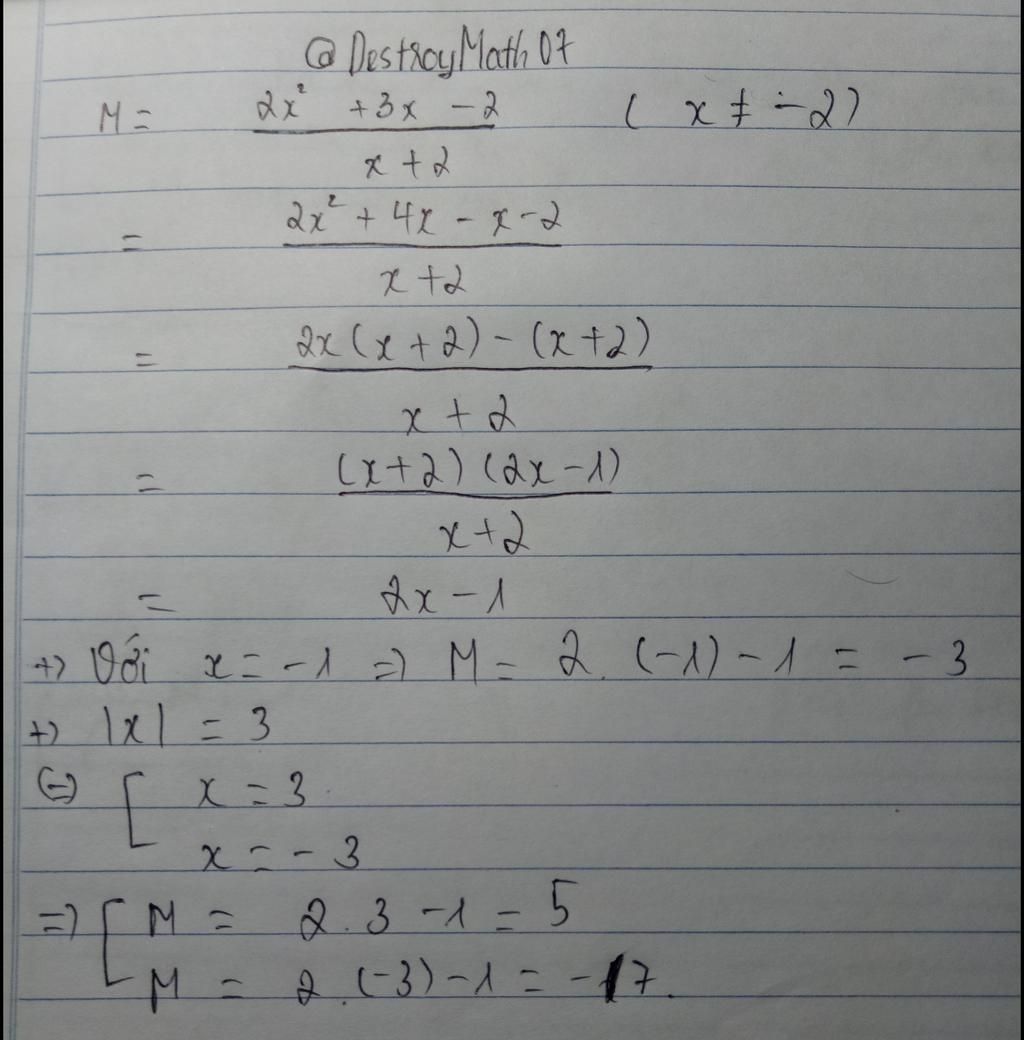 @DestroyMath07
M = (2x² + 3x - 2)/(x + 2) ( x ≠ -2)
= (2x² + 4x - x - 2)/(x + 2)
= (2x(x + 2) - (x + 2))/(x + 2)
= ((x + 2)(2x - 1))/(x + 2)
= 2x - 1
+) Với x = -1 => M = 2. (-1) - 1 = -3
+) |x| = 3
(=) [ x = 3
x = -3
=) [ M = 2. 3 - 1 = 5
M = 2. (-3) - 1 = -7.